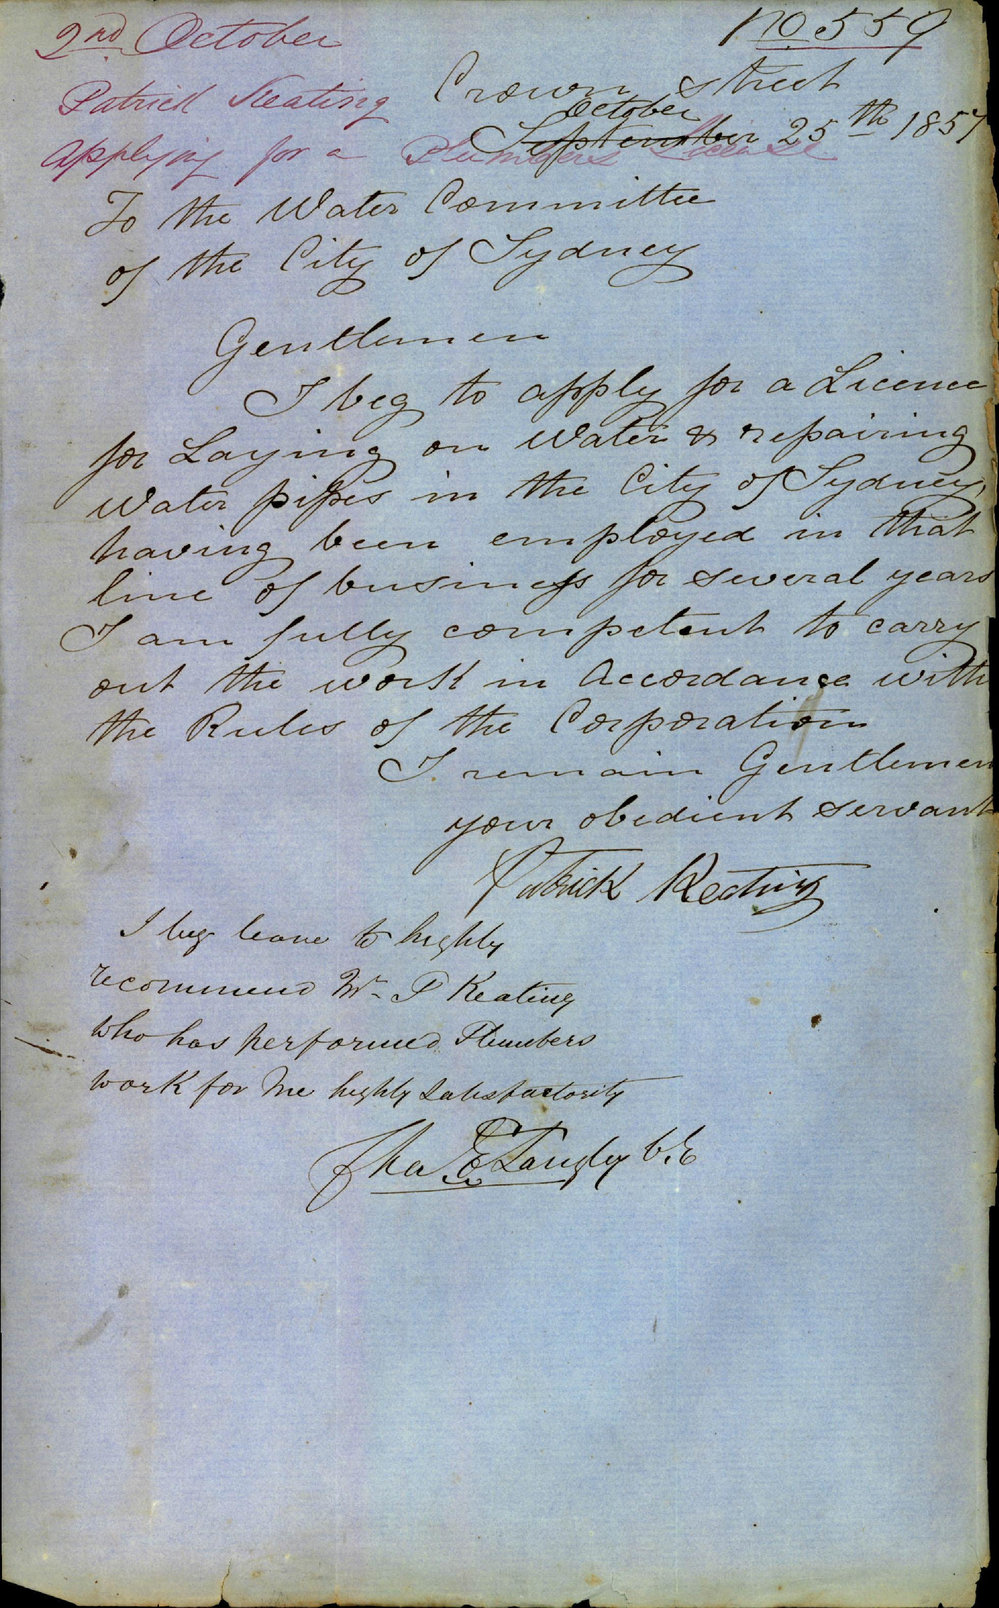 2nd October
No 559
Patrick Keating
Applying for a Plumbers License
Crown Street
October
September 25th 1857
To the Water Committee
of the City of Sydney
Gentlemen
I beg to apply for a Licence
for Laying on Water & repairing
Water pipes in the City of Sydney,
having been employed in that
line of business for several years
I am fully competent to carry
out the work in Accordance with
the Rules of the Corporation
I remain Gentlemen
your obedient servant
Patrick Keating
I beg leave to highly
recommend Mr P Keating
who has performed Plumbers
work for me highly satisfactorily
E Langley C.E